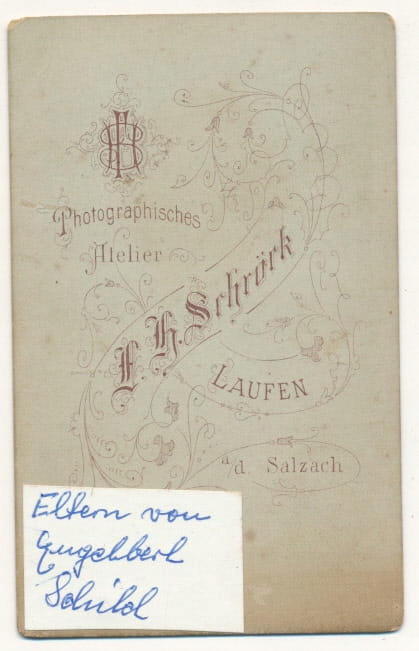 Photographisches
Atelier
E. H. Schrörk
LAUFEN
a/d. Salzach
Eltern von
Engelbert
Schild